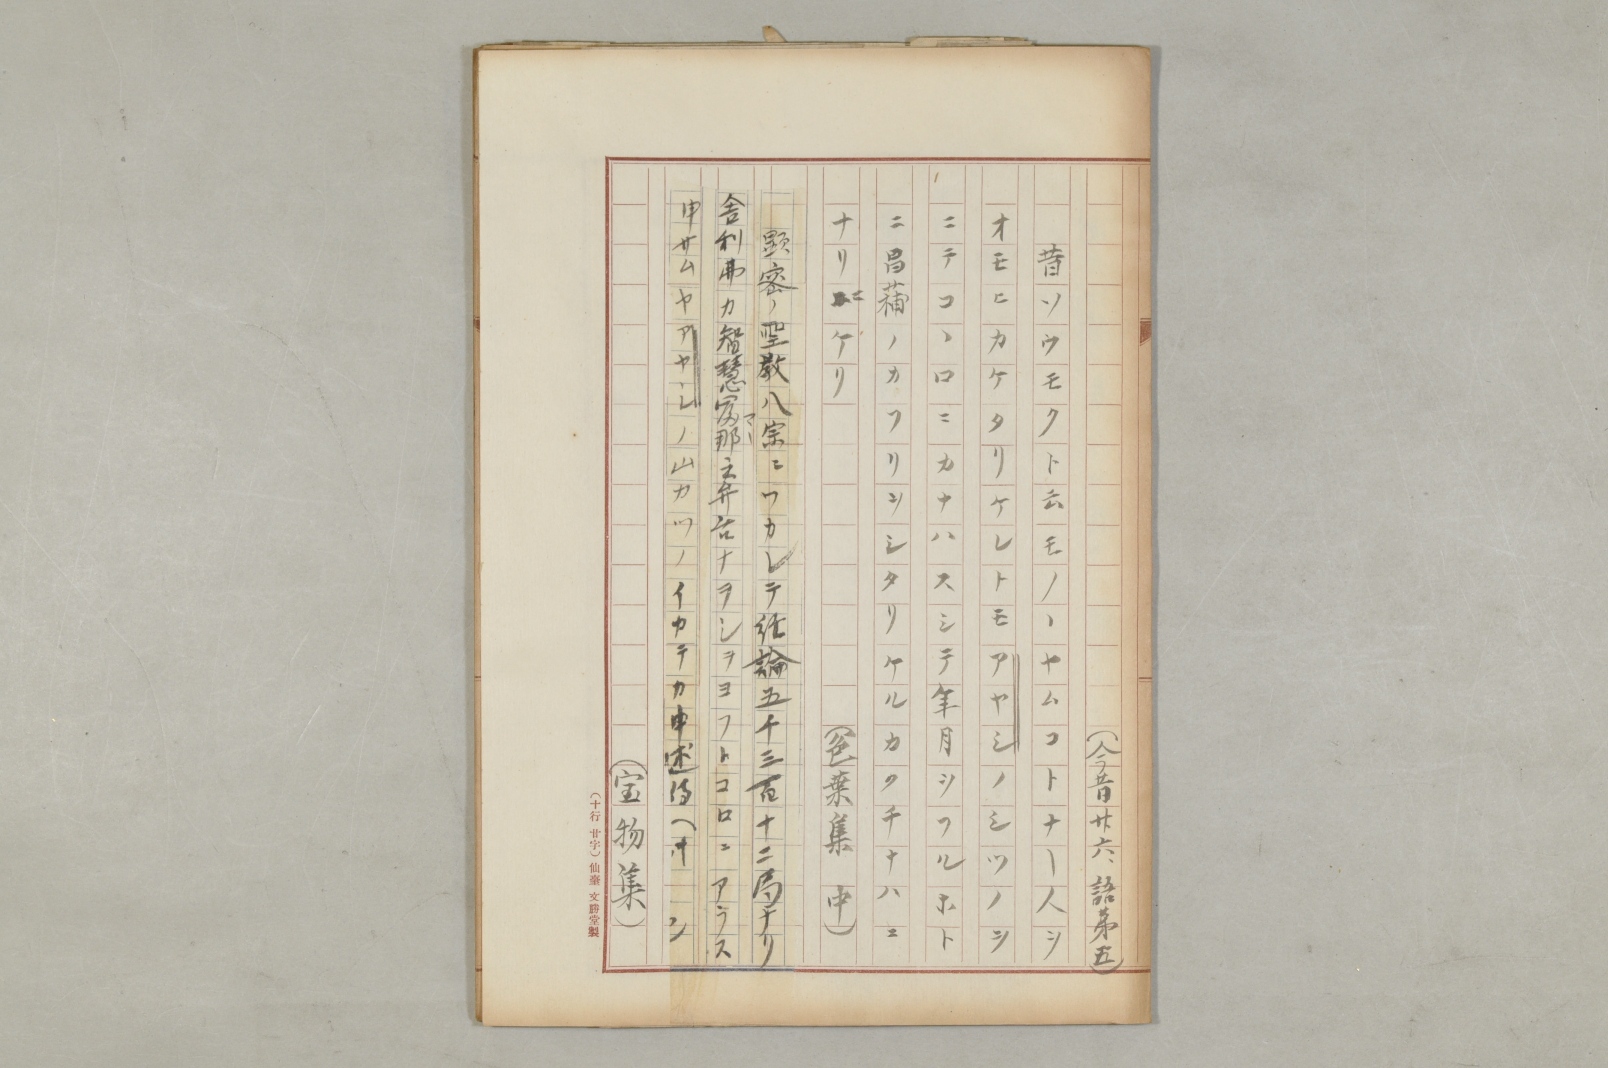 (今昔廿六、語第五)
昔ソウモクト云モノヽヤムコトナー人ヲ
オモヒカケタリケレトモアヤシノシツノヲ
ニテコヽロニカナハスシテ年月ヲフルホト
ニ昌蒲ノカフリヲシタリケルカクチナハニ
ナリニケリ
(色葉集 中)
顕密ノ聖教八宗ニワカレテ経論五千三百十二局ナリ
舎利弗カ智慧冨那
申サムヤアヤシノ山カツノイカテカ申述侍ヘキ
(宝物集)
(十行 廿字)仙臺 文勝堂製